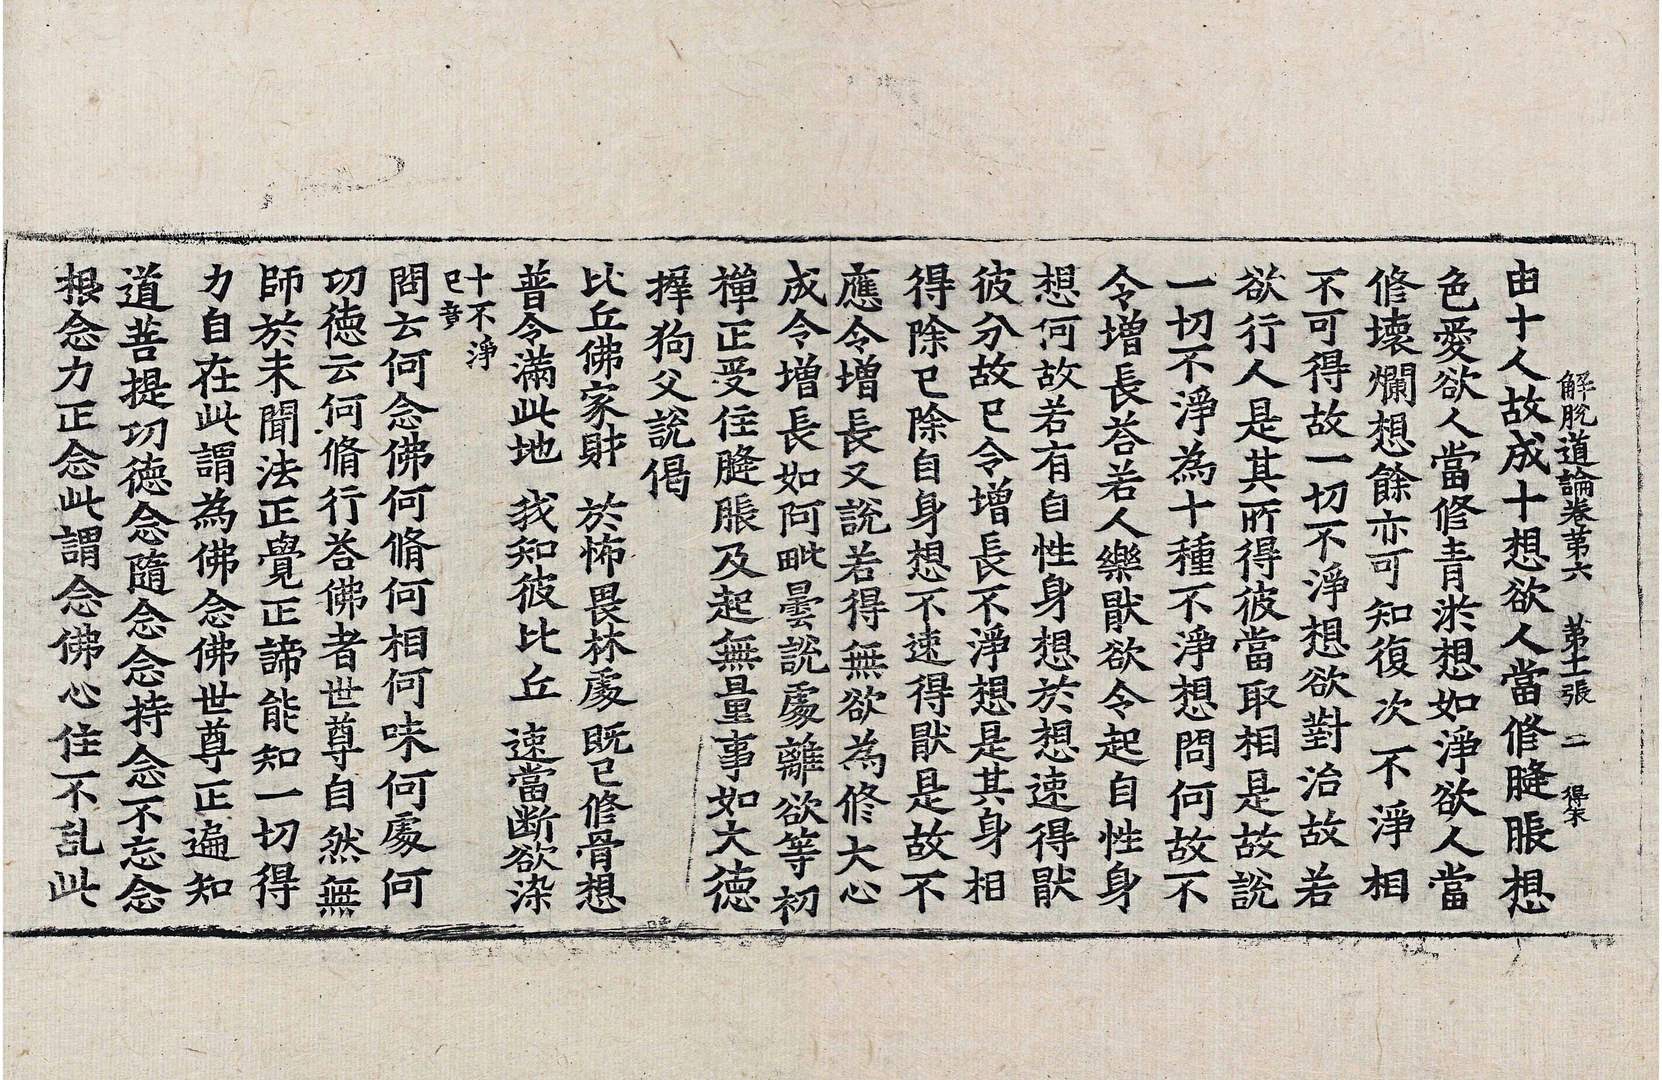 解脫道論卷第六　第十一張　二　得宋
由十人故成十想欲人當修膖脹想
色愛欲人當修青淤想如淨欲人當
修壞爛想餘亦可知復次不淨相
不可得故一切不淨想欲對治故若
欲行人是其所得彼當取相是故說
一切不淨為十種不淨想問何故不
令增長荅若人樂猒欲令起自性身
想何故若有自性身想於想速得猒
彼分故已令增長不淨想是其身相
得除已除自身想不速得猒是故不
應令增長又說若得無欲為修大心
成令增長如阿毗曇說處離欲等初
禪正受住膖脹及起無量事如大德
摨狗父說偈
比丘佛家財　於怖畏林處　既已修骨想
普令滿此地　我知彼比丘　速當断欲染
十不淨
已竟
問云何念佛何脩何相何味何處何
功德云何脩行荅佛者世尊自然無
師於未聞法正覺正諦能知一切得
力自在此謂為佛念佛世尊正遍知
道菩提功德念隨念念持念不忘念
根念力正念此謂念佛心住不乱此